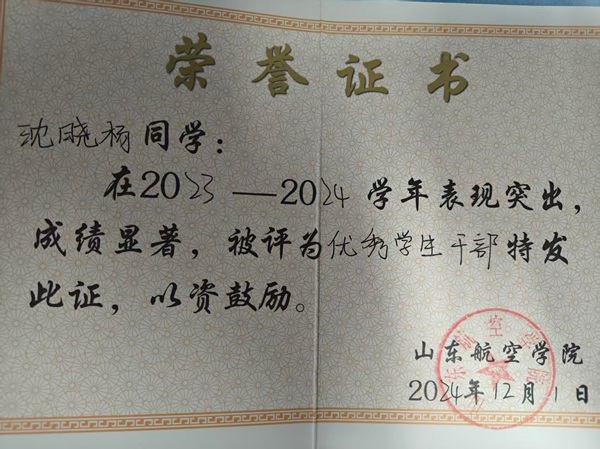 荣誉证书
沈晓杨同学：
在2023—2024学年表现突出，
成绩显著，被评为优秀学生干部特发
此证，以资鼓励。
山东航空学院
2024年12月1日